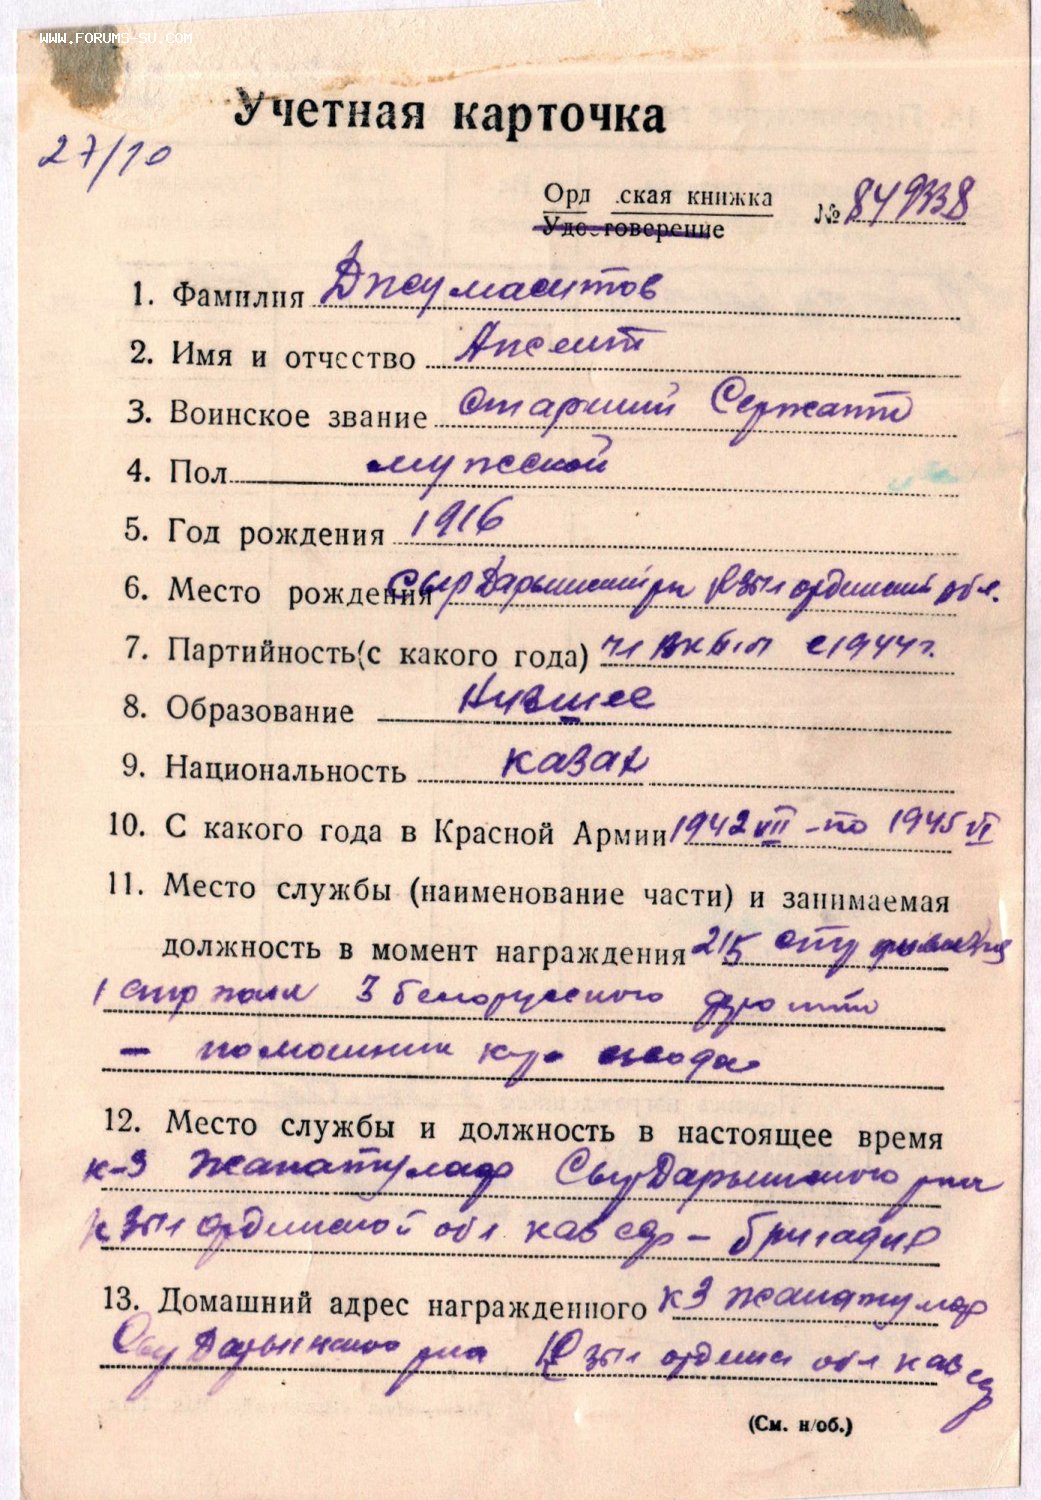 WWW.FORUMS-SU.COM
Учетная карточка
27/10
Орд ская книжка
Удостоверение
№ 849338
1. Фамилия Джумаситов
2. Имя и отчество Апсеит
3. Воинское звание старший Сержант
4. Пол мужской
5. Год рождения 1916
6. Место рождения СырДарьинский рн Кзыл ординский обл.
7. Партийность(с какого года) чл ВКБ.п с 1944 г.
8. Образование Низшее
9. Национальность казах
10. С какого года в Красной Армии 1942 VII - по 1945 VI
11. Место службы (наименование части) и занимаемая
должность в момент награждения 215 стр дивизия
1 стр полк 3 белорусского фронта
- помошник взвода
12. Место службы и должность в настоящее время
к-з Жанатулап СырДарьинского рна
Кзыл ординской обл каз сср - бригадир
13. Домашний адрес награжденного кз Жанатулап
СырДарьинского рна Кзыл ордин обл каз сср
(См. н/об.)